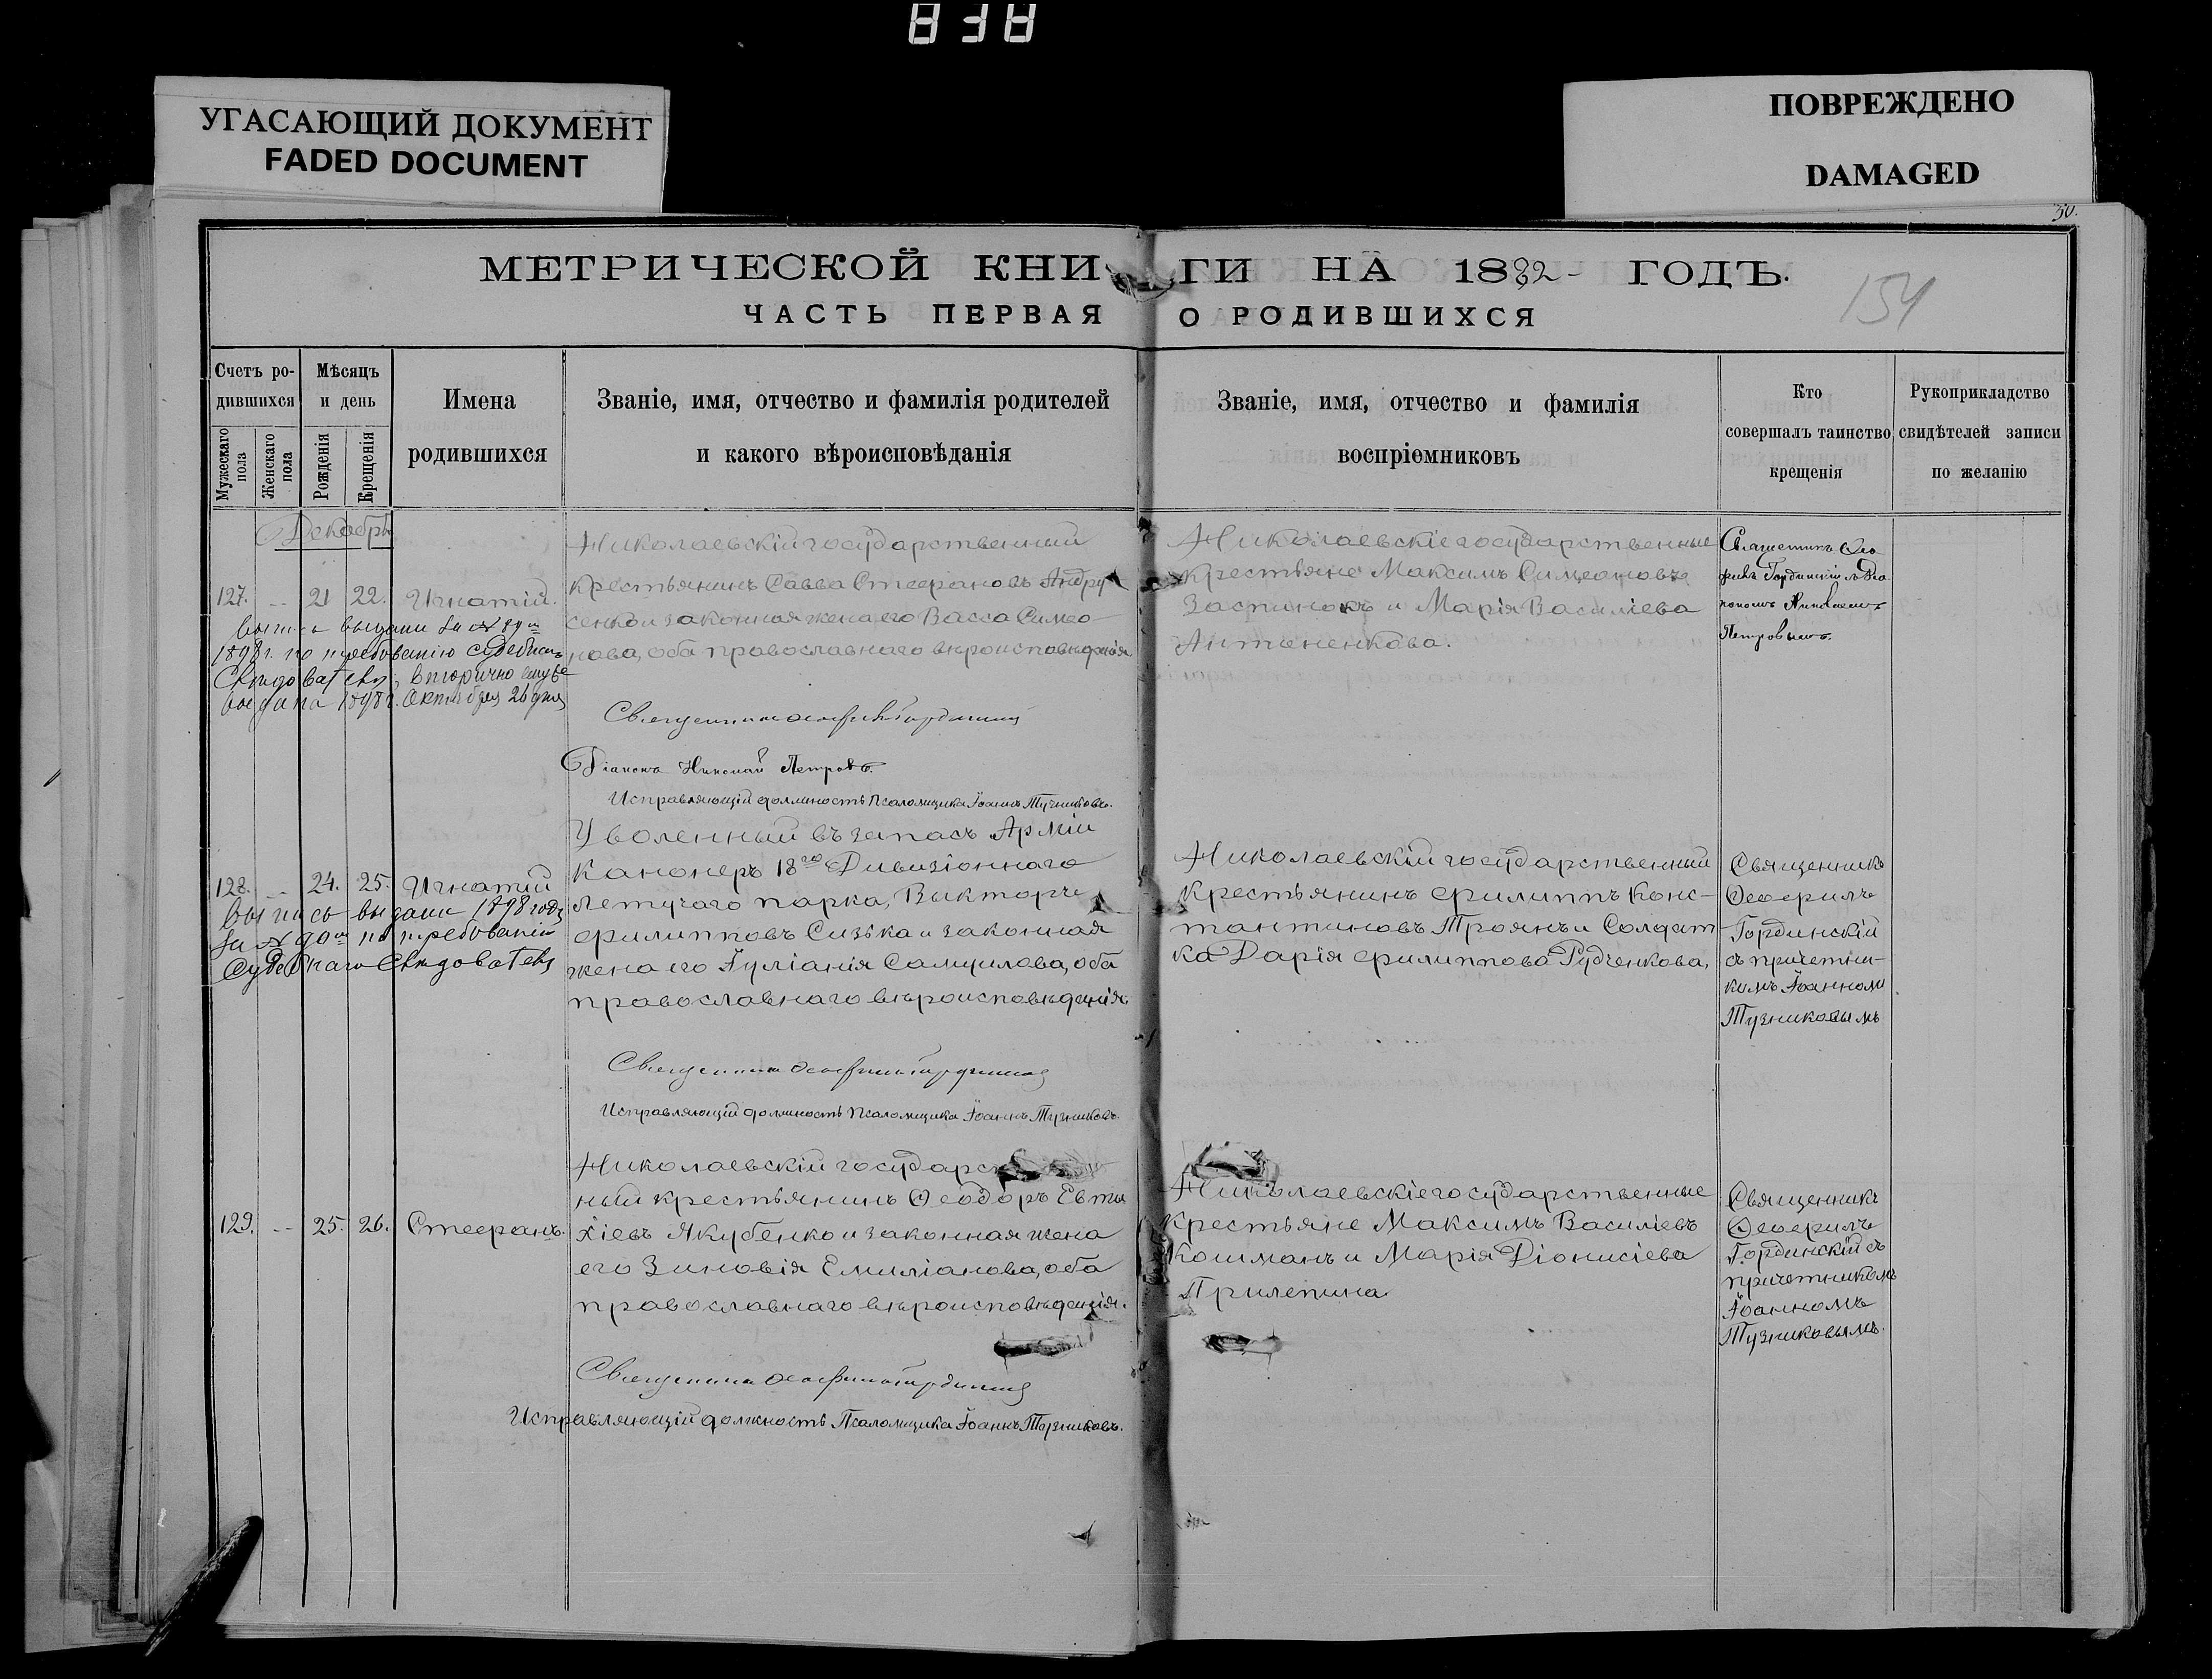 838
УГАСАЮЩИЙ ДОКУМЕНТ
FADED DOCUMENT
ПОВРЕЖДЕНО
DAMAGED
30.
МЕТРИЧЕСКОЙ КНИГИ НА 1882 ГОДЪ.
154
ЧАСТЬ ПЕРВАЯ О РОДИВШИХСЯ
Счетъ ро-
дившихся
Мужескаго пола
Женскаго пола
Мѣсяцъ
и день
Рожденія
Крещенія
Имена
родившихся
Званіе, имя, отчество и фамилія родителей
и какого вѣроисповѣданія
Званіе, имя, отчество и фамилія
воспріемниковъ
Кто
совершалъ таинство
крещенія
Рукоприкладство
свидѣтелей записи
по желанію
Декабрь
127. -- 21 22. Игнатій.
выпись выдана за №
1898 г. по требованію судебнаго
Слѣдователя, вторично
выдана 1898 г. Октября 26 дня
Николаевскій государственный
крестьянинъ Савва Стефановъ Андру
сенко и законная жена его Васса Симео-
нова, оба православнаго вѣроисповѣданія
Священникъ Ѳеофилъ Гординскій
Діаконъ Николай Петровъ.
Исправляющій должность Псаломщика Іоаннъ Тузниковъ.
Николаевскіе государственные
крестьяне Максимъ Симеоновъ
и Марія Василіева
Антоненкова.
Священникъ Ѳео
филъ Гординскій съ Діа
кономъ Николаемъ
Петровымъ.
128. -- 24. 25. Игнатій
выпись выдана 1898 года
за № по требованію
Судебнаго Слѣдователя
Уволенный въ запасъ Арміи
Канонеръ 18го Дивизіоннаго
летучаго парка, Викторъ
Филипповъ Сизька и законная
жена его Іуліанія Самуилова, оба
православнаго вѣроисповѣданія
Священникъ Ѳеофилъ Гординскій
Исправляющій должность Псаломщика Іоаннъ Тузниковъ.
Николаевскій государственный
крестьянинъ Филиппъ Конс-
тантиновъ Троянъ и Солдат-
ка Дарія Филиппова Рудченкова,
Священникъ
Ѳеофилъ
Гординскій
съ причетни-
комъ Іоанномъ
Тузниковымъ
129. -- 25. 26. Стефанъ.
Николаевскій государс
ный крестьянинъ Ѳеодоръ Евти
хіевъ Якубенко и законная жена
его Зиновія Емиліанова, оба
православнаго вѣроисповѣданія.
Священникъ Ѳеофилъ Гординскій
Исправляющій должность Псаломщика Іоаннъ Тузниковъ.
Николаевскіе государственные
крестьяне Максимъ Василіевъ
Кошманъ и Марія Діонисіева
Прилепина
Священникъ
Ѳеофилъ
Гординскій съ
причетникомъ
Іоанномъ
Тузниковымъ.